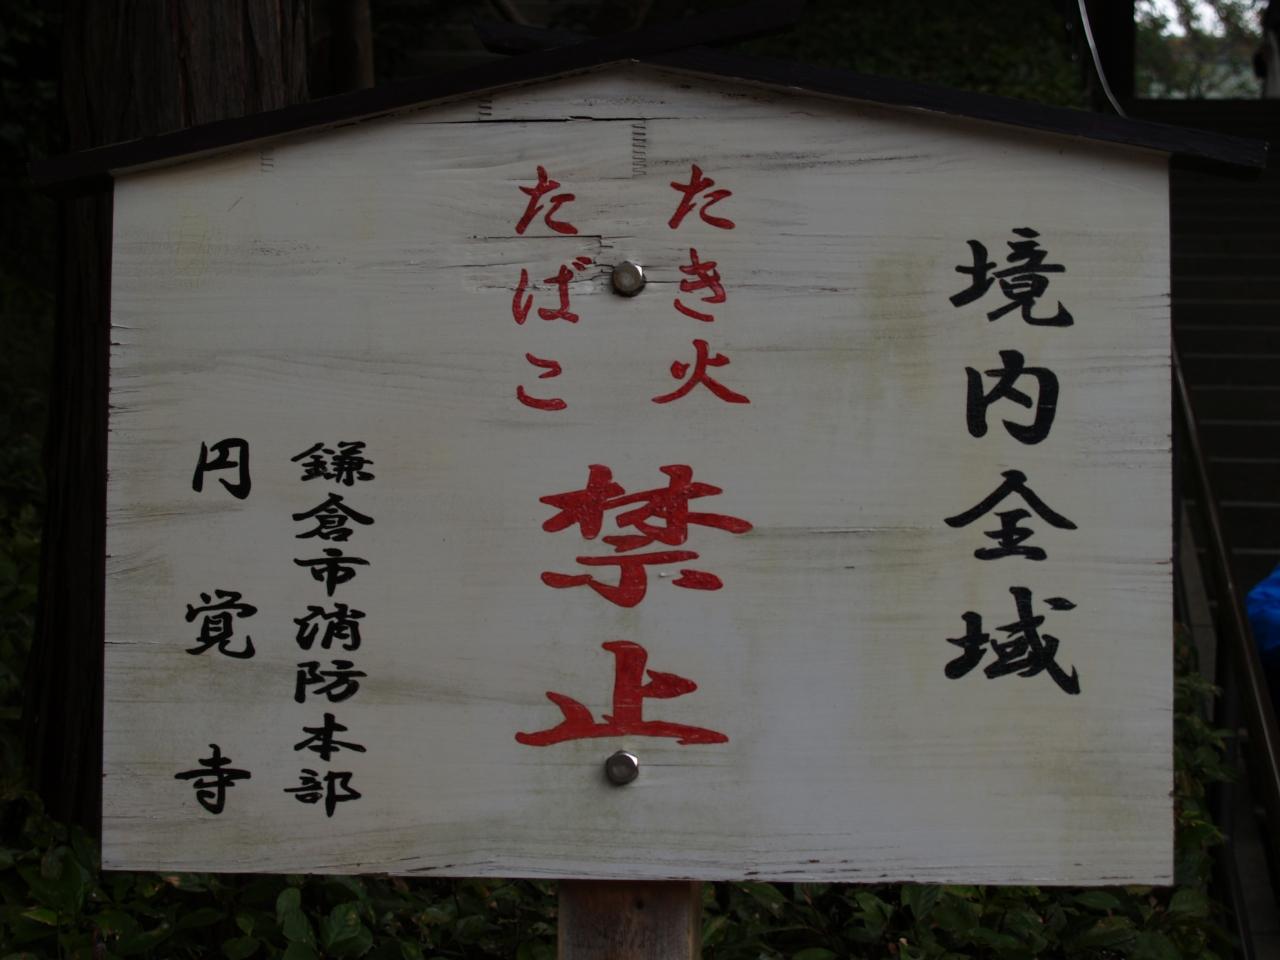 境内全域
たき火
たばこ
禁止
鎌倉市消防本部
円覚寺